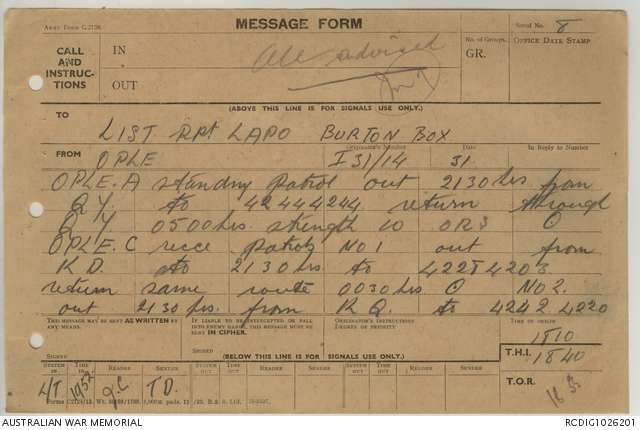 Army Form C.2128.
MESSAGE FORM
Serial No. 8
CALL AND INSTRUC-TIONS
IN
All advised
No. of Groups.
GR.
OFFICE DATE STAMP
OUT
(ABOVE THIS LINE IS FOR SIGNALS USE ONLY.)
TO
LIST Rpt LAPO BURTON BOX
FROM OPLE
Originator's Number I 31/14
Date 31
In Reply to Number
OPLE.A standing patrol out 2130 hrs from
Q.Y. to 42444244 return through
Q Y 0500 hrs. strength 10 ORS O
OPLE.C recce patrols NO 1 out from
K D. to 2130 hrs. to 4225 4203
return same route 0030 hrs. O NO 2.
out 2130 hrs. from R Q. to 4242 4220
THIS MESSAGE MAY BE SENT AS WRITTEN BY ANY MEANS.
IF LIABLE TO BE INTERCEPTED OR FALL INTO ENEMY HANDS, THIS MESSAGE MUST BE SENT IN CIPHER.
ORIGINATOR'S INSTRUCTIONS DEGREE OF PRIORITY
TIME OF ORIGIN
1810
SIGNED
SIGNED
(BELOW THIS LINE IS FOR SIGNALS USE ONLY.)
T.H.I. 1840
SYSTEM IN
TIME IN
READER
SENDER
SYSTEM OUT
TIME OUT
READER
SENDER
SYSTEM OUT
TIME OUT
READER
SENDER
T.O.R.
L/T 1952 T D.
AUSTRALIAN WAR MEMORIAL
RCDIG1026201